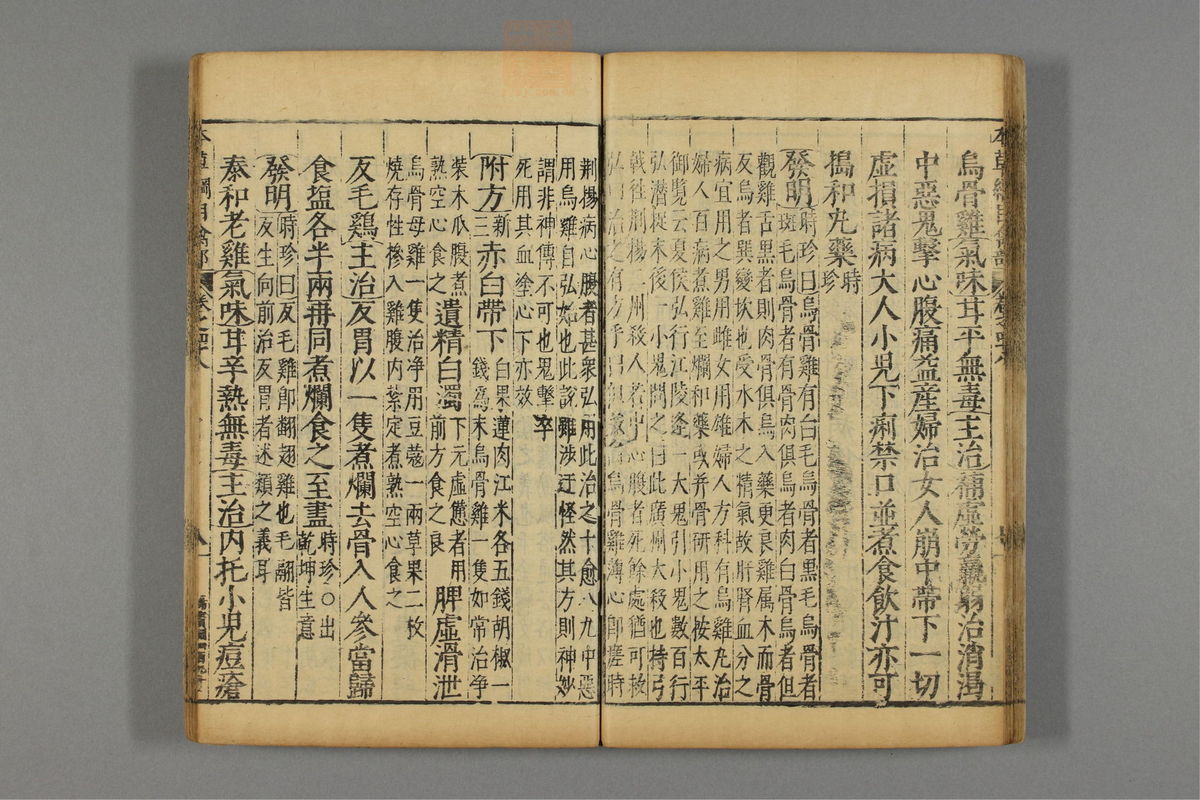 烏骨雞氣味甘平無毒主治補虛勞羸弱治消渴
中惡鬼擊心腹痛益產婦治女人崩中帶下一切
虛損諸病大人小兒下痢禁口並煮食飲汁亦可
搗和丸藥時珍
發明時珍曰烏骨雞有白毛烏骨者黑毛烏骨者
斑毛烏骨者有骨肉俱烏者肉白骨烏者但
觀雞舌黑者則肉骨俱烏入藥更良雞属木而骨
反烏者巽變坎也受水木之精氣故肝腎血分之
病宜用之男用雌女用雄婦人方科有烏雞丸治
婦人百病煮雞至爛和藥或并骨研用之按太平
御覽云夏侯弘行江陵逢一大鬼引小鬼數百行
弘潛捉末後一小鬼問之曰此廣州大殺也持弓
戟往荆揚二州殺人若中心腹者死餘處猶可救
弘曰治之有方乎曰但殺白烏骨雞薄心即瘥時
荆揚病心腹者甚衆弘用此治之十愈八九中惡
用烏雞自弘始也此說雖涉迂怪然其方則神妙
謂非神傳不可也鬼擊卒
死用其血塗心下亦效
附方新三赤白帶下白果蓮肉江米各五錢胡椒一
錢為末烏骨雞一隻如常治淨
裝木瓜腹煮
熟空心食之遺精白濁下元虛憊者用
前方食之良脾虛滑泄
烏骨母雞一隻治淨用豆蔻一兩草果二枚
燒存性慘入雞腹內紮定煮熟空心食之
反毛鷄主治反胃以一隻煮爛去骨入人參當歸
食盐各半兩再同煮爛食之至盡時珍○出
乾坤生意
發明時珍曰反毛雞即翻翅雞也毛翮皆
反生向前治反胃者述類之義耳
泰和老雞氣味甘辛熱無毒主治內托小兒痘瘡